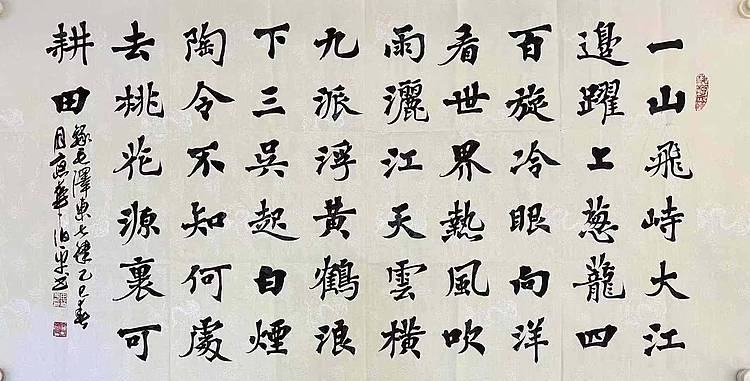 一山飛峙大江
邊躍上葱龍四
百旋冷眼向洋
看世界熱風吹
雨灑江天雲橫
九派浮黃鶴浪
下三吳起白煙
陶令不知何處
去桃花源裏可
耕田
錄毛澤東七律乙巳春
月